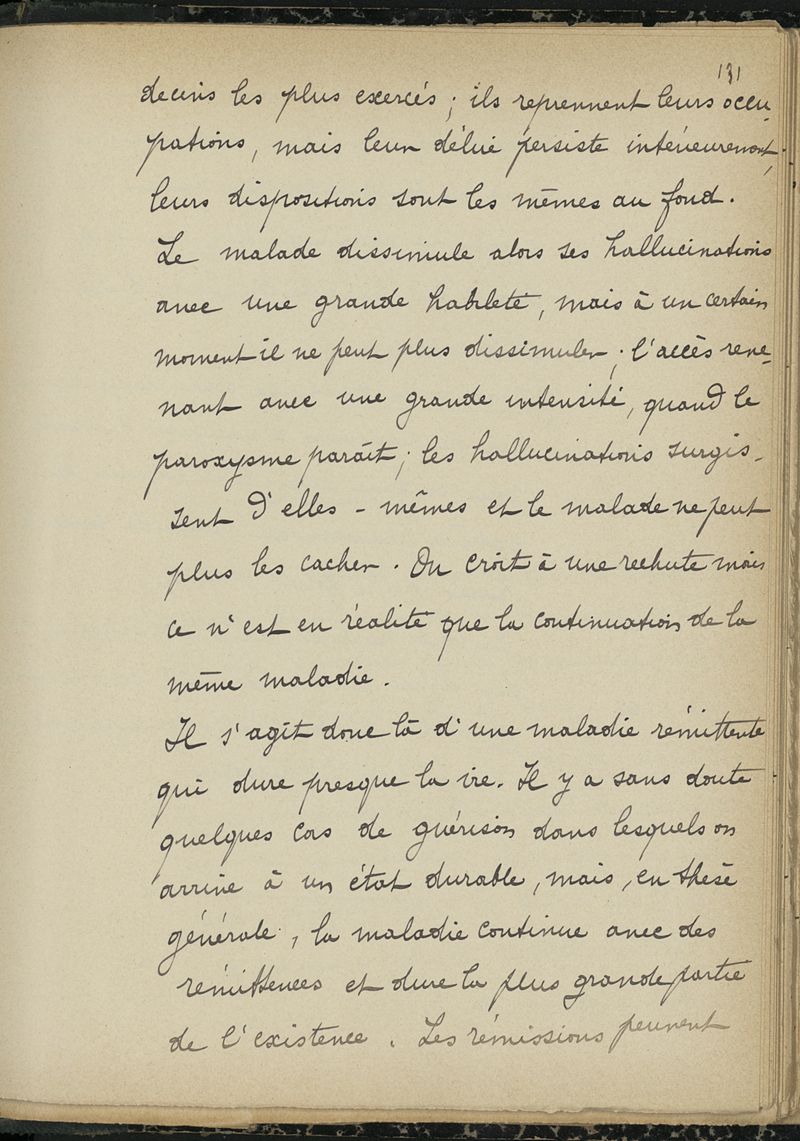 131
decins les plus exercés ; ils reprennent leurs occu-
pations, mais leur délire persiste intérieurement,
leurs dispositions sont les mêmes au fond.
Le malade dissimule alors ses hallucinations
avec une grande habileté, mais à un certain
moment il ne peut plus dissimuler ; l'accès reve-
nant avec une grande intensité, quand le
paroxysme paraît ; les hallucinations surgis-
sent d'elles-mêmes et le malade ne peut
plus les cacher. On croit à une rechute mais
ce n'est en réalité que la continuation de la
même maladie.
Il s'agit donc là d'une maladie rémittente
qui dure presque la vie. Il y a sans doute
quelques cas de guérison dans lesquels on
arrive à un état durable, mais, en thèse
générale, la maladie continue avec des
rémittences et dure la plus grande partie
de l'existence. Les rémissions peuvent